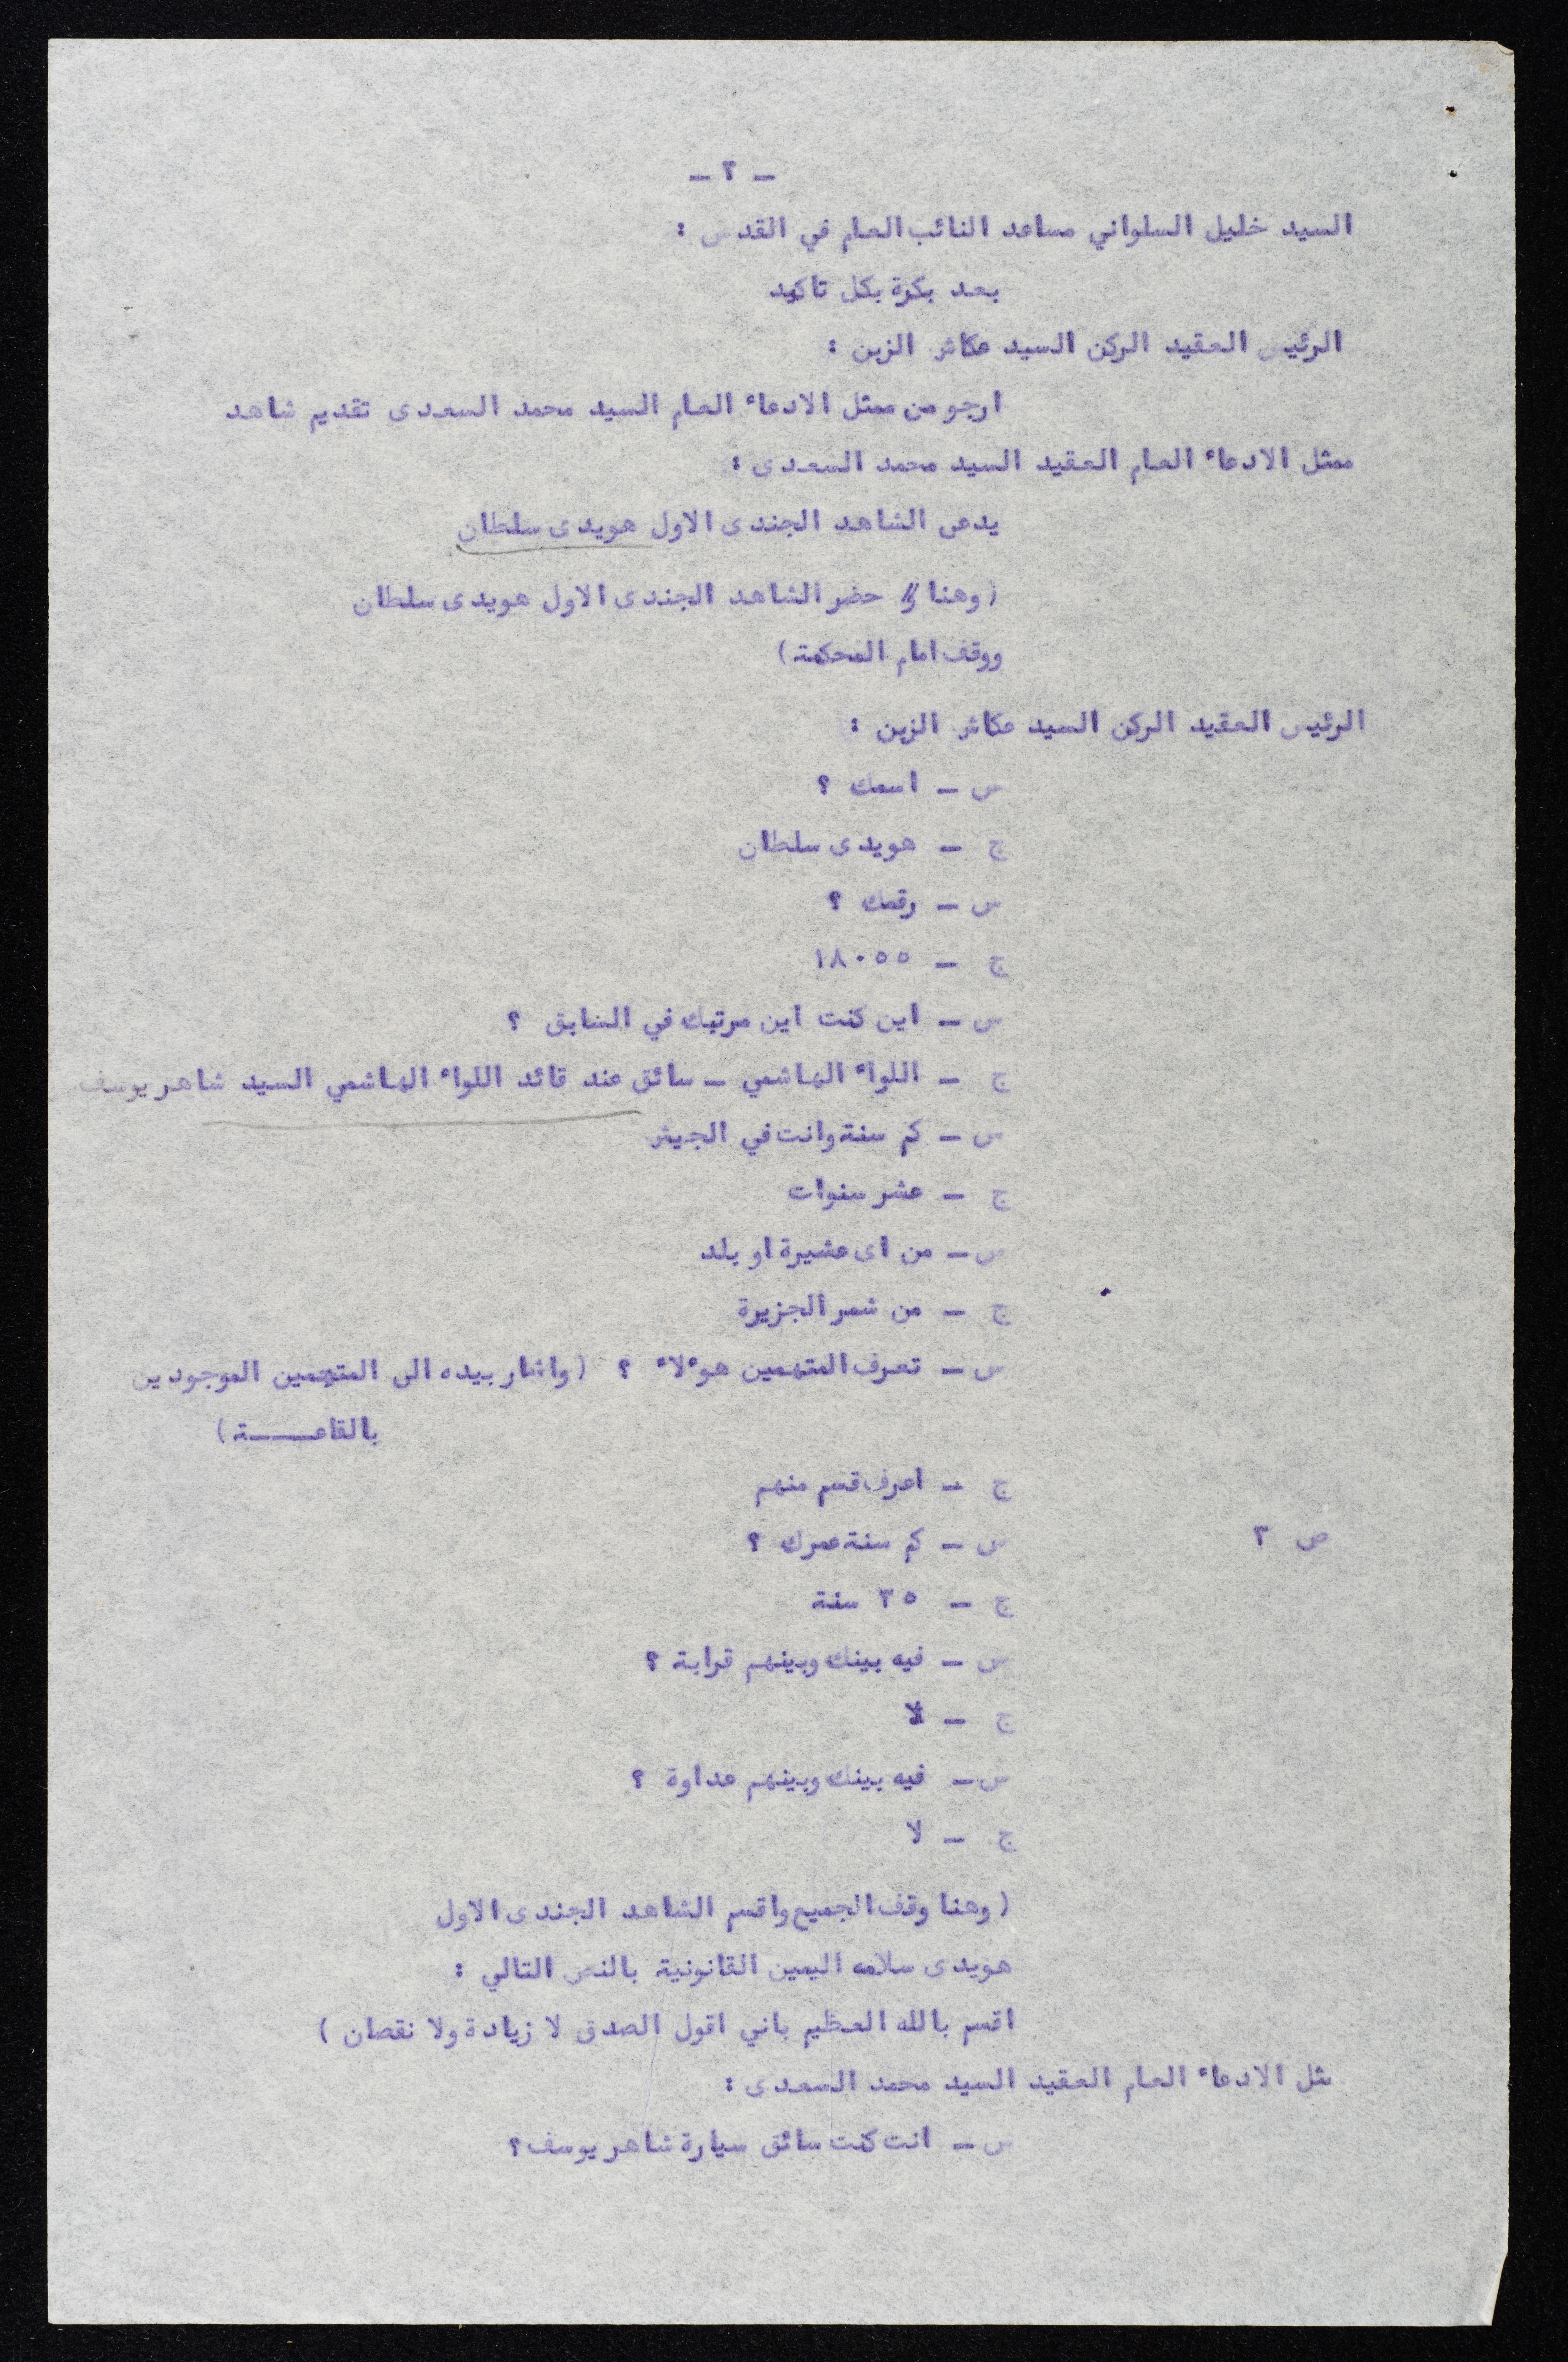 - ٢ -
السيد خليل السلواني مساعد النائب العام في القدس :
بعد بكرة بكل تاكيد
الرئيس العقيد الركن السيد عكاش الزبن :
ارجو من ممثل الادعاء العام السيد محمد السعدى تقديم شاهد
ممثل الادعاء العام العقيد السيد محمد السعدى :
يدعى الشاهد الجندى الاول هويدى سلطان
( وهنا حضر الشاهد الجندى الاول هويدى سلطان
ووقف امام المحكمة )
الرئيس العقيد الركن السيد عكاش الزبن :
س - اسمك ؟
ج - هويدى سلطان
س - رقمك ؟
ج - ١٨٠٥٥
س - اين كنت اين مرتبك في السابق ؟
ج - اللواء الهاشمي - سائق عند قائد اللواء الهاشمي السيد شاهر يوسف
س - كم سنة وانت في الجيش
ج - عشر سنوات
س - من اى عشيرة او بلد
ج - من شمر الجزيرة
س - تعرف المتهمين هوءلاء ؟ ( واشار بيده الى المتهمين الموجودين
بالقاعـــــة )
ج - اعرف قسم منهم
ص ٢ س - كم سنة عمرك ؟
ج - ٣٥ سنة
س - فيه بينك وبينهم قرابة ؟
ج - لا
س - فيه بينك وبينهم عداوة ؟
ج - لا
( وهنا وقف الجميع واقسم الشاهد الجندى الاول
هويدى سلامه اليمين القانونية بالنص التالي :
اقسم بالله العظيم باني اقول الصدق لا زيادة ولا نقصان )
مثل الادعاء العام العقيد السيد محمد السعدى :
س - انت كنت سائق سيارة شاهر يوسف ؟